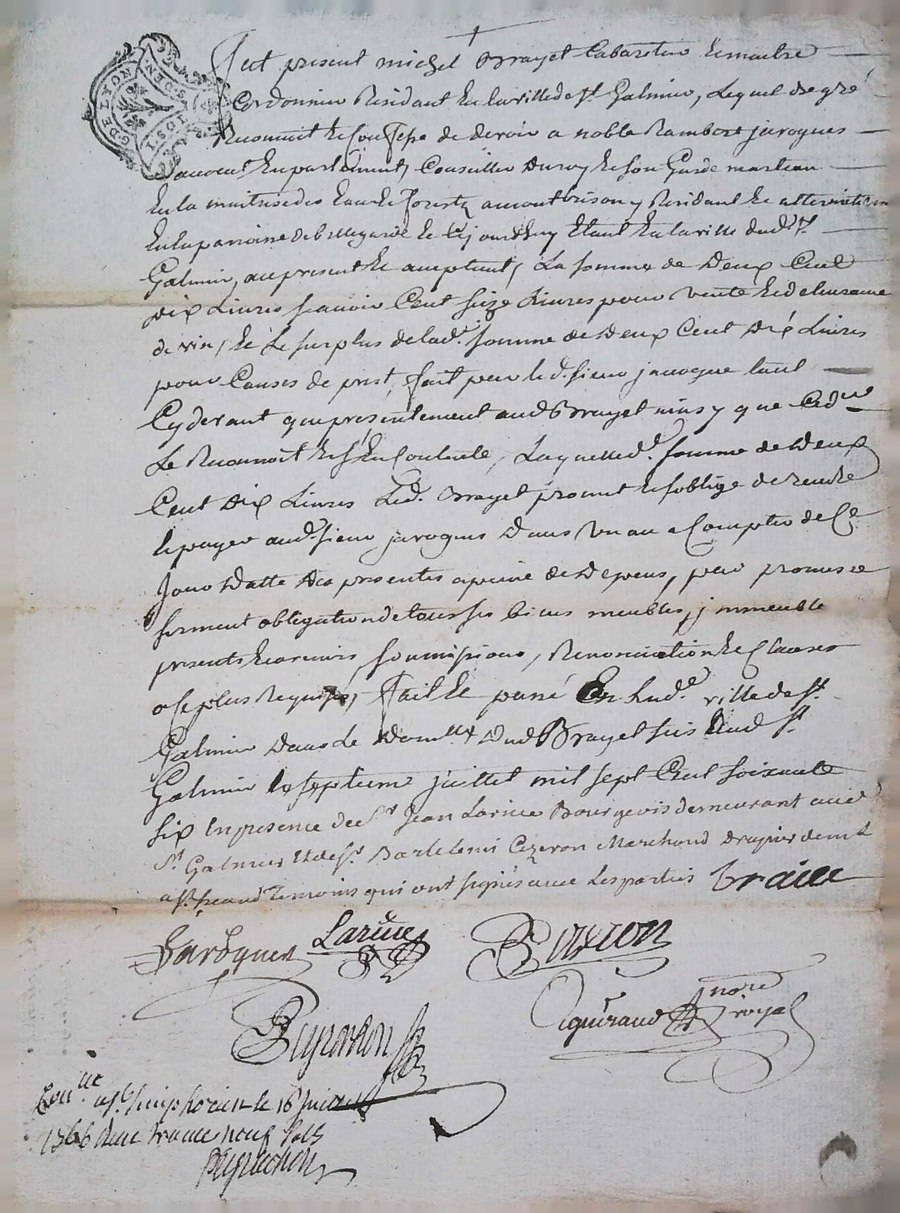 G. DE LYON
DEN.
Fut present michel Brayet Cabaretier & maitre
Cordonnier Residant en la ville de St Galmier, Lequel de gré
Reconnoit & Confesse de devoir a noble Rambert javogues
avocat en parlement, Conseiller Du roy & son Garde marteau
En la maitrise des Eaux & forests a montbrison y Residant &
En la paroisse de bellegarde & ce jourdhuy Etant En la ville dud. St
Galmier, au present & acceptant, La somme de Deux Cent
Dix Livres scavoir Cent seize Livres pour vente & delivrance
de vin, & Le surplus de lad. somme de Deux Cent Dix Livres
pour Causes de prest, fait par led. sieur javogue tant
Cy devant que presentement aud Brayet ainsy que
Le Reconnoit & s'en Contente, Laquelle d. somme de Deux
Cent Dix Livres Led. Brayet promet & s'oblige de rendre
& payer aud. sieur javogues Dans Un an a Compter de Ce
Jour Datte des presentes a peine de Depens, par promesse
serment obligation de tous ses biens meubles, jmmeuble
presents & avenir, soumissions, Renonciation & Clauses
a ce plus Requises, fait & passé En lad. ville de St
Galmier Dans le Domlle Dud Brayet sis aud St
Galmier le septieme juillet mil sept Cent soixante
six En presence de Sr Jean Larive Bourgeois demeurant aud
St Galmier Et de Sr Bartelemi Cizeron Marchand Drapier demt
a St temoins qui ont signés avec Les parties Braiet
Javogues Larive
Peyrachon nore royal
a St Simphorien le 16 juillet
1766 neuf sols
Peyrachon